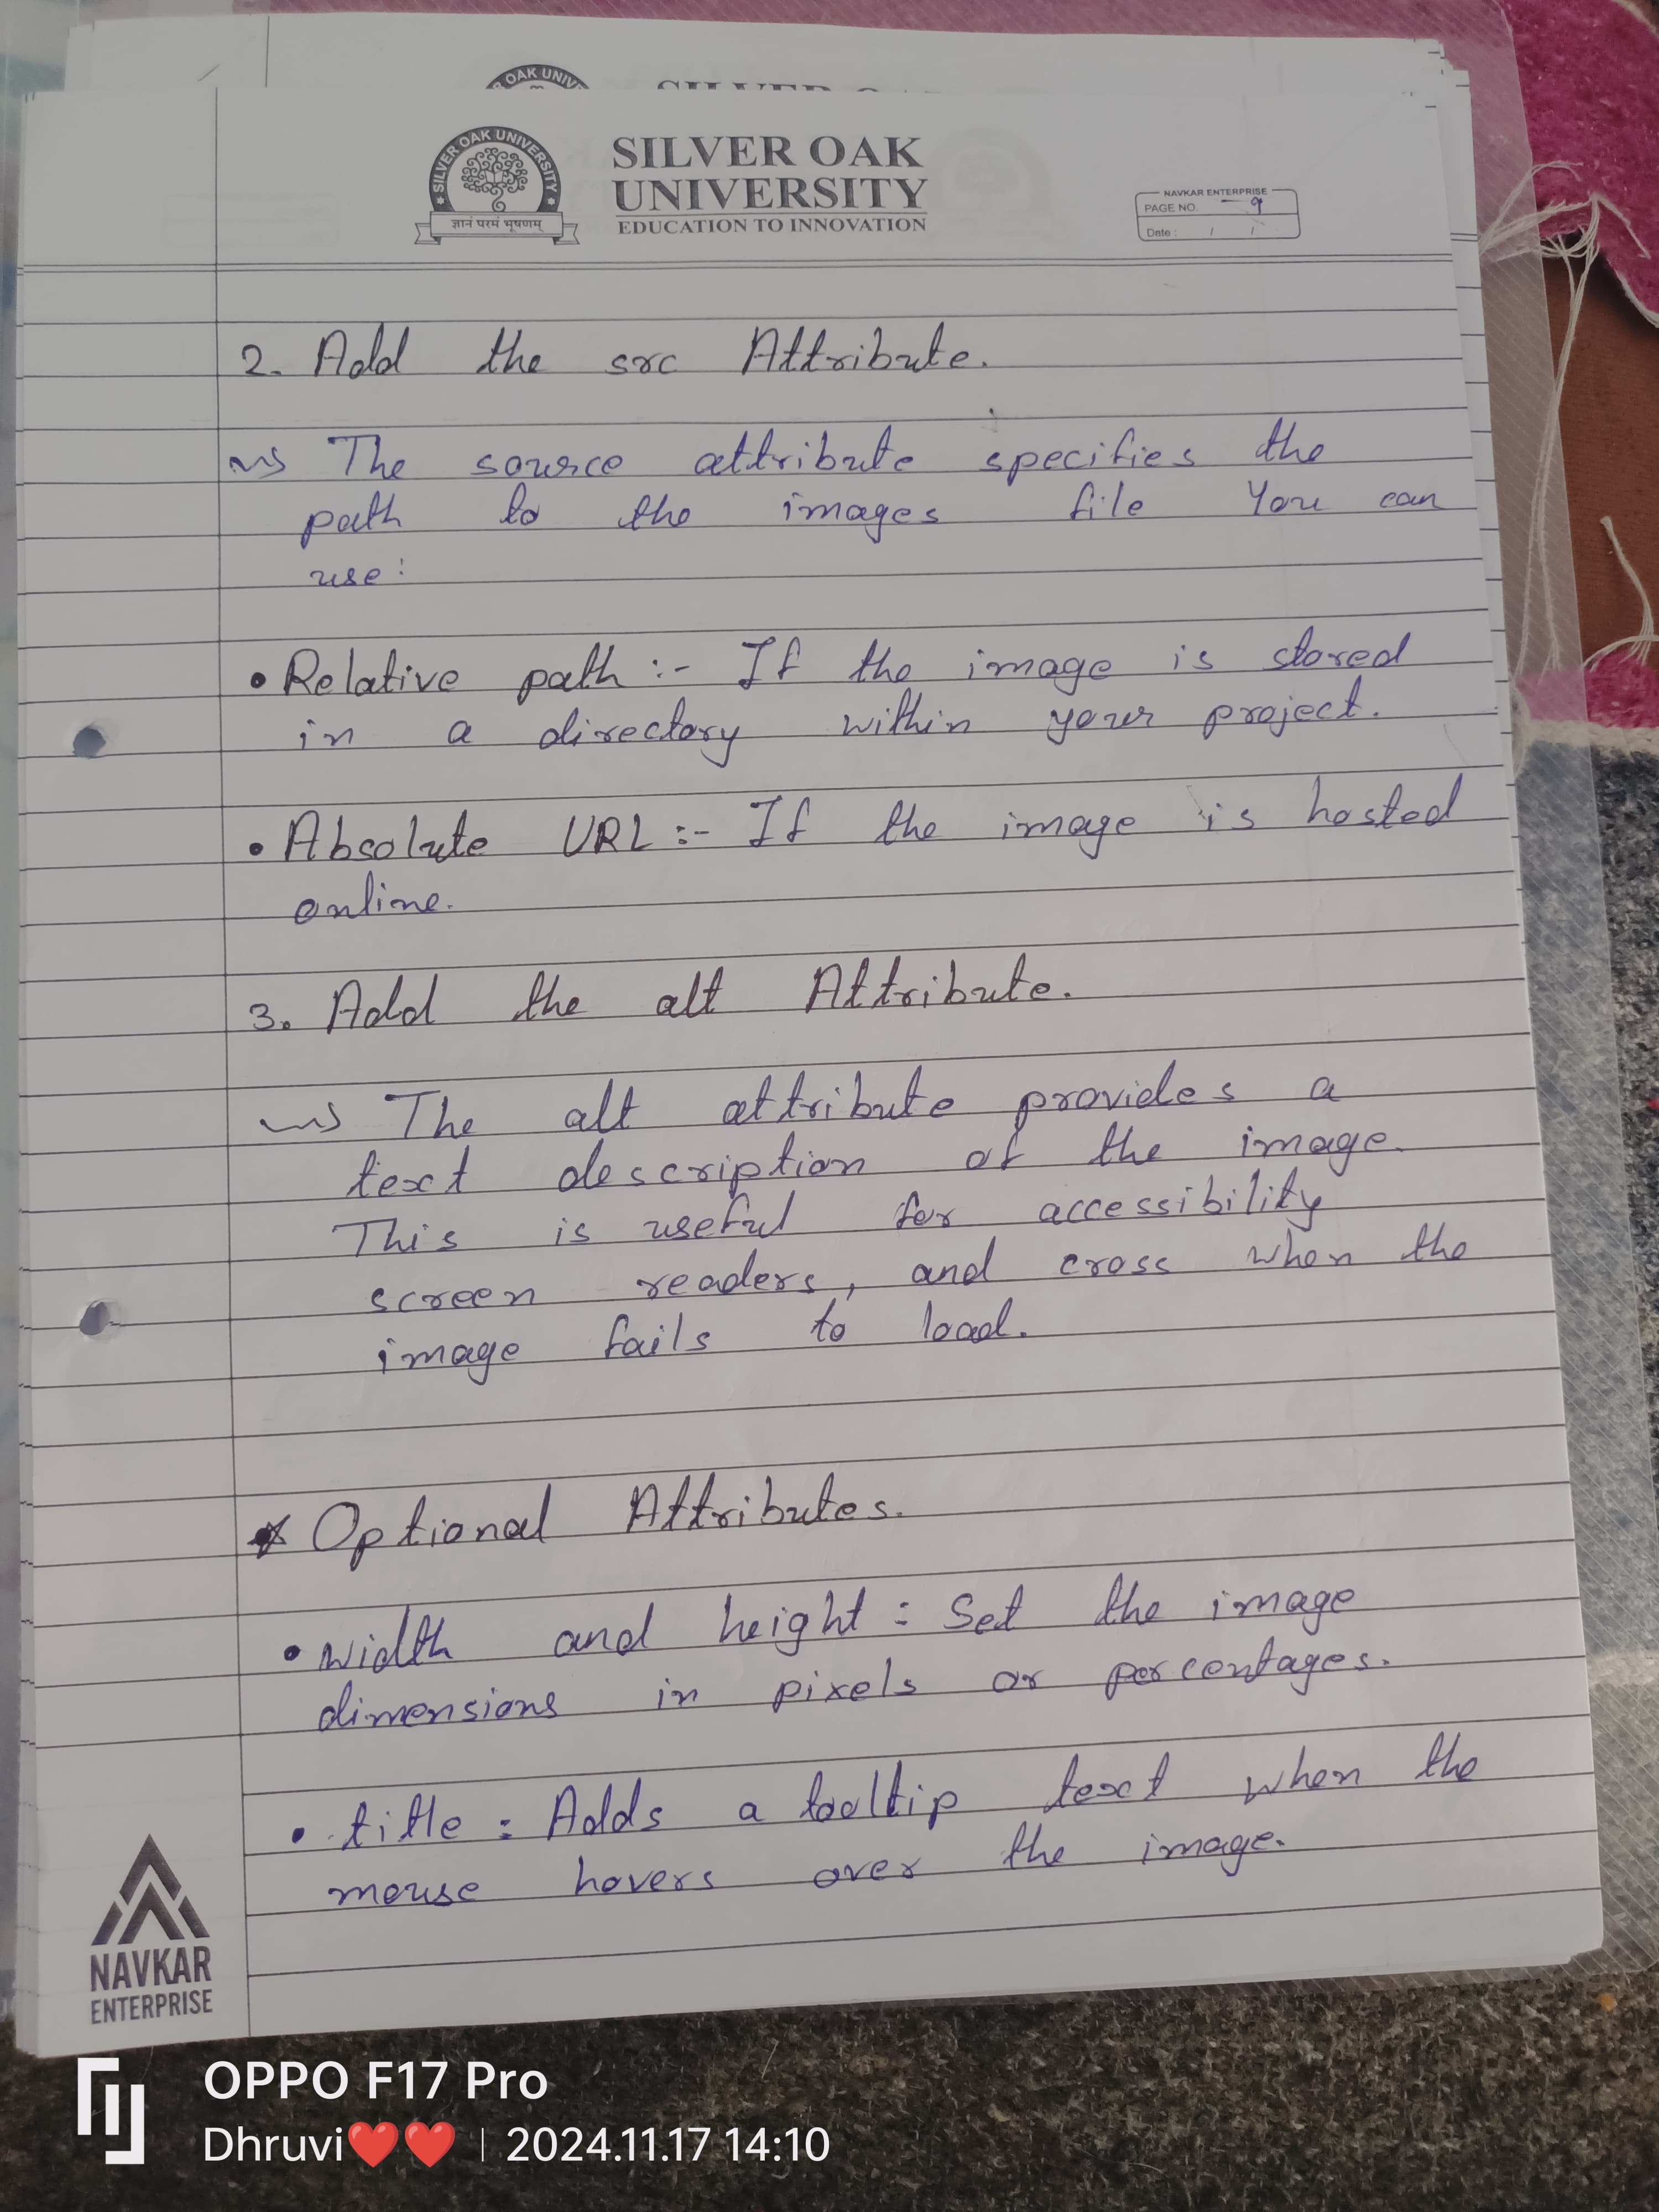 OAK UNIV
SILVER OAK UNIVERSITY
ज्ञानं परमं भूषणम्
SILVER OAK
UNIVERSITY
EDUCATION TO INNOVATION
NAVKAR ENTERPRISE
PAGE NO. 9
Date : / /
2. Add the src Attribute.
The source attribute specifies the
path to the images file You can
use:
• Relative path :- If the image is stored
in a directory within your project.
• Absolute URL :- If the image is hosted
online.
3. Add the alt Attribute.
The alt attribute provides a
text description of the image.
This is useful for accessibility
screen readers, and cross when the
image fails to load.
* Optional Attributes.
• width and height : Set the image
dimensions in pixels or percentages.
• title : Adds a tooltip text when the
mouse hovers over the image.
NAVKAR
ENTERPRISE
OPPO F17 Pro
Dhruvi❤️❤️ | 2024.11.17 14:10